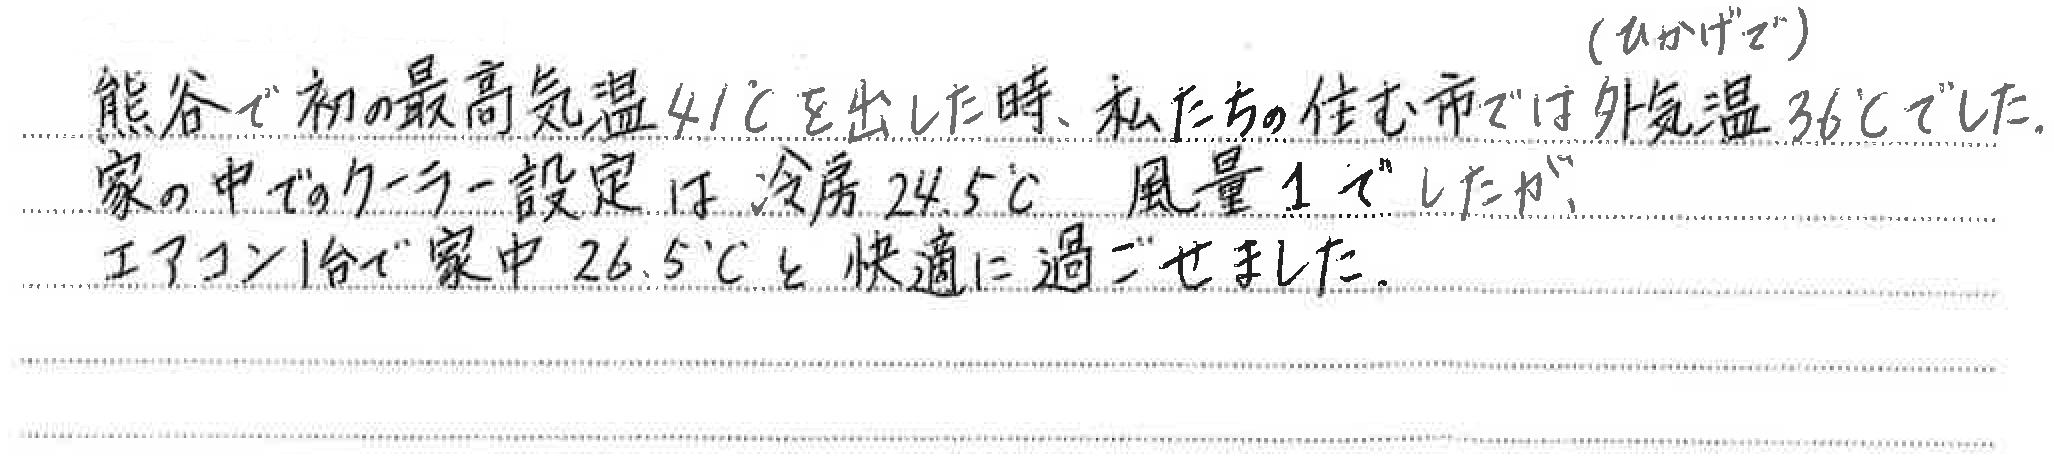 (ひかげで)
熊谷で初の最高気温41℃を出した時、私たちの住む市では外気温36℃でした。
家の中でのクーラー設定は冷房24.5℃ 風量1でしたが、
エアコン1台で家中26.5℃と快適に過ごせました。